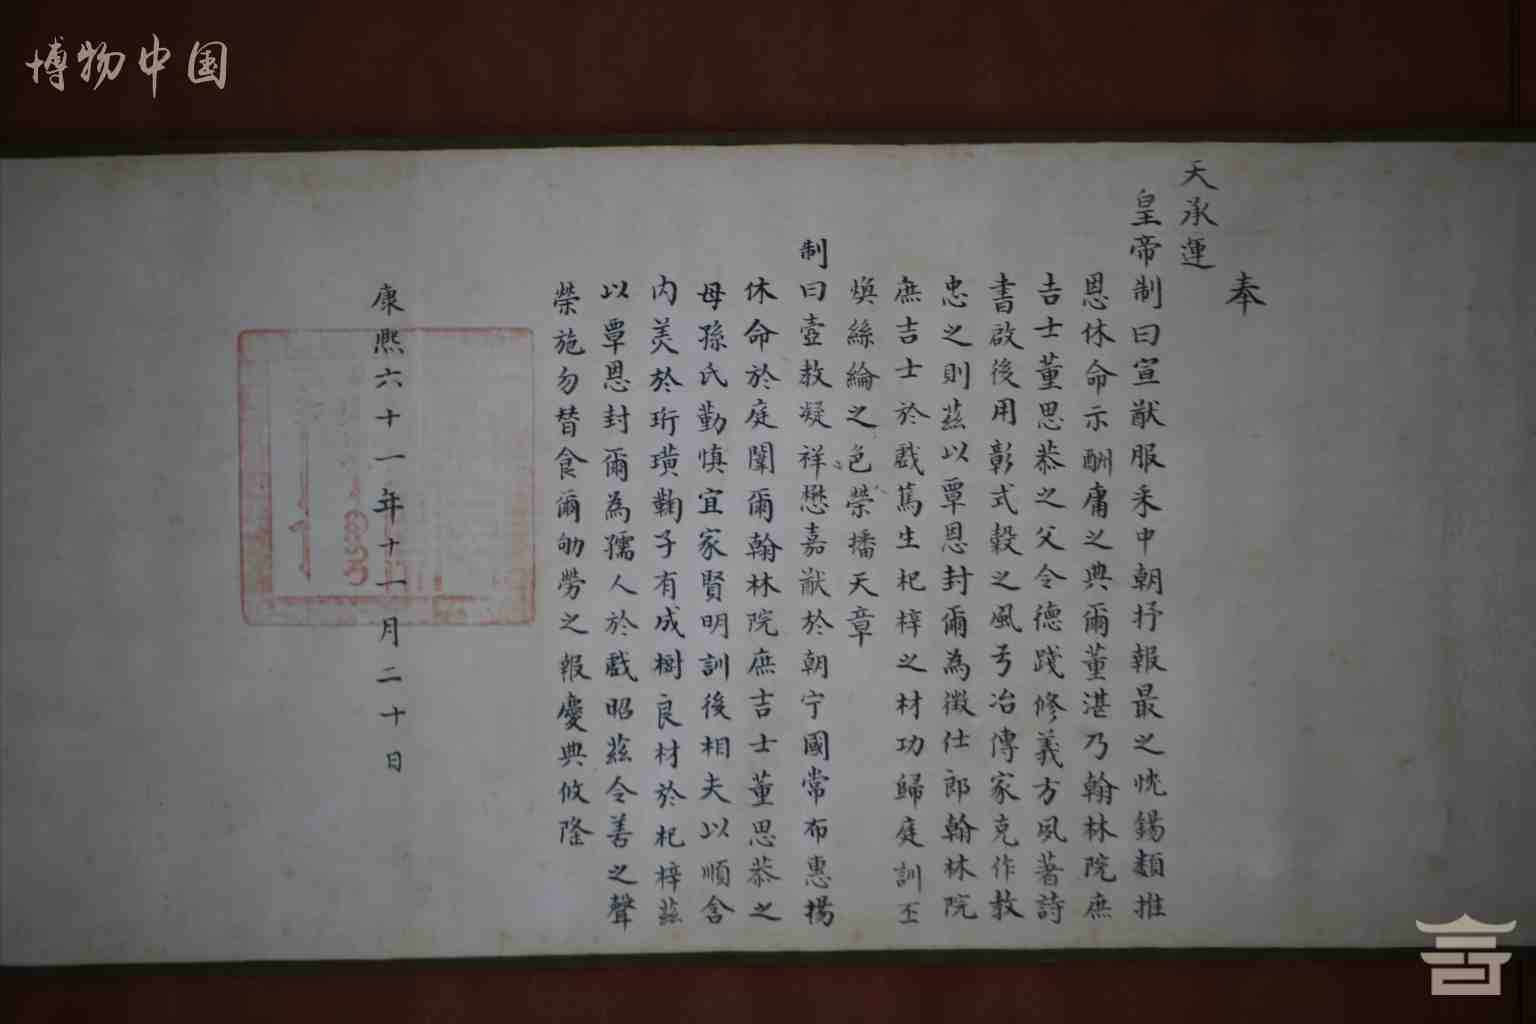 博物中国
奉
天承運
皇帝制曰宣猷服采中朝抒報最之忱錫類推
恩休命示酬庸之典爾董湛乃翰林院庶
吉士董思恭之父令德踐修義方夙著詩
書啟後用彰式穀之風弓冶傳家克作教
忠之則茲以覃恩封爾為徵仕郎翰林院
庶吉士於戲篤生杞梓之材功歸庭訓丕
煥絲綸之色榮播天章
制曰壼教凝祥懋嘉猷於朝宁國常布惠揚
休命於庭闈爾翰林院庶吉士董思恭之
母孫氏勤慎宜家賢明訓後相夫以順含
內美於珩璜鞠子有成樹良材於杞梓茲
以覃恩封爾為孺人於戲昭茲令善之聲
榮施勿替食爾劬勞之報慶典攸隆
康熙六十一年十一月二十日